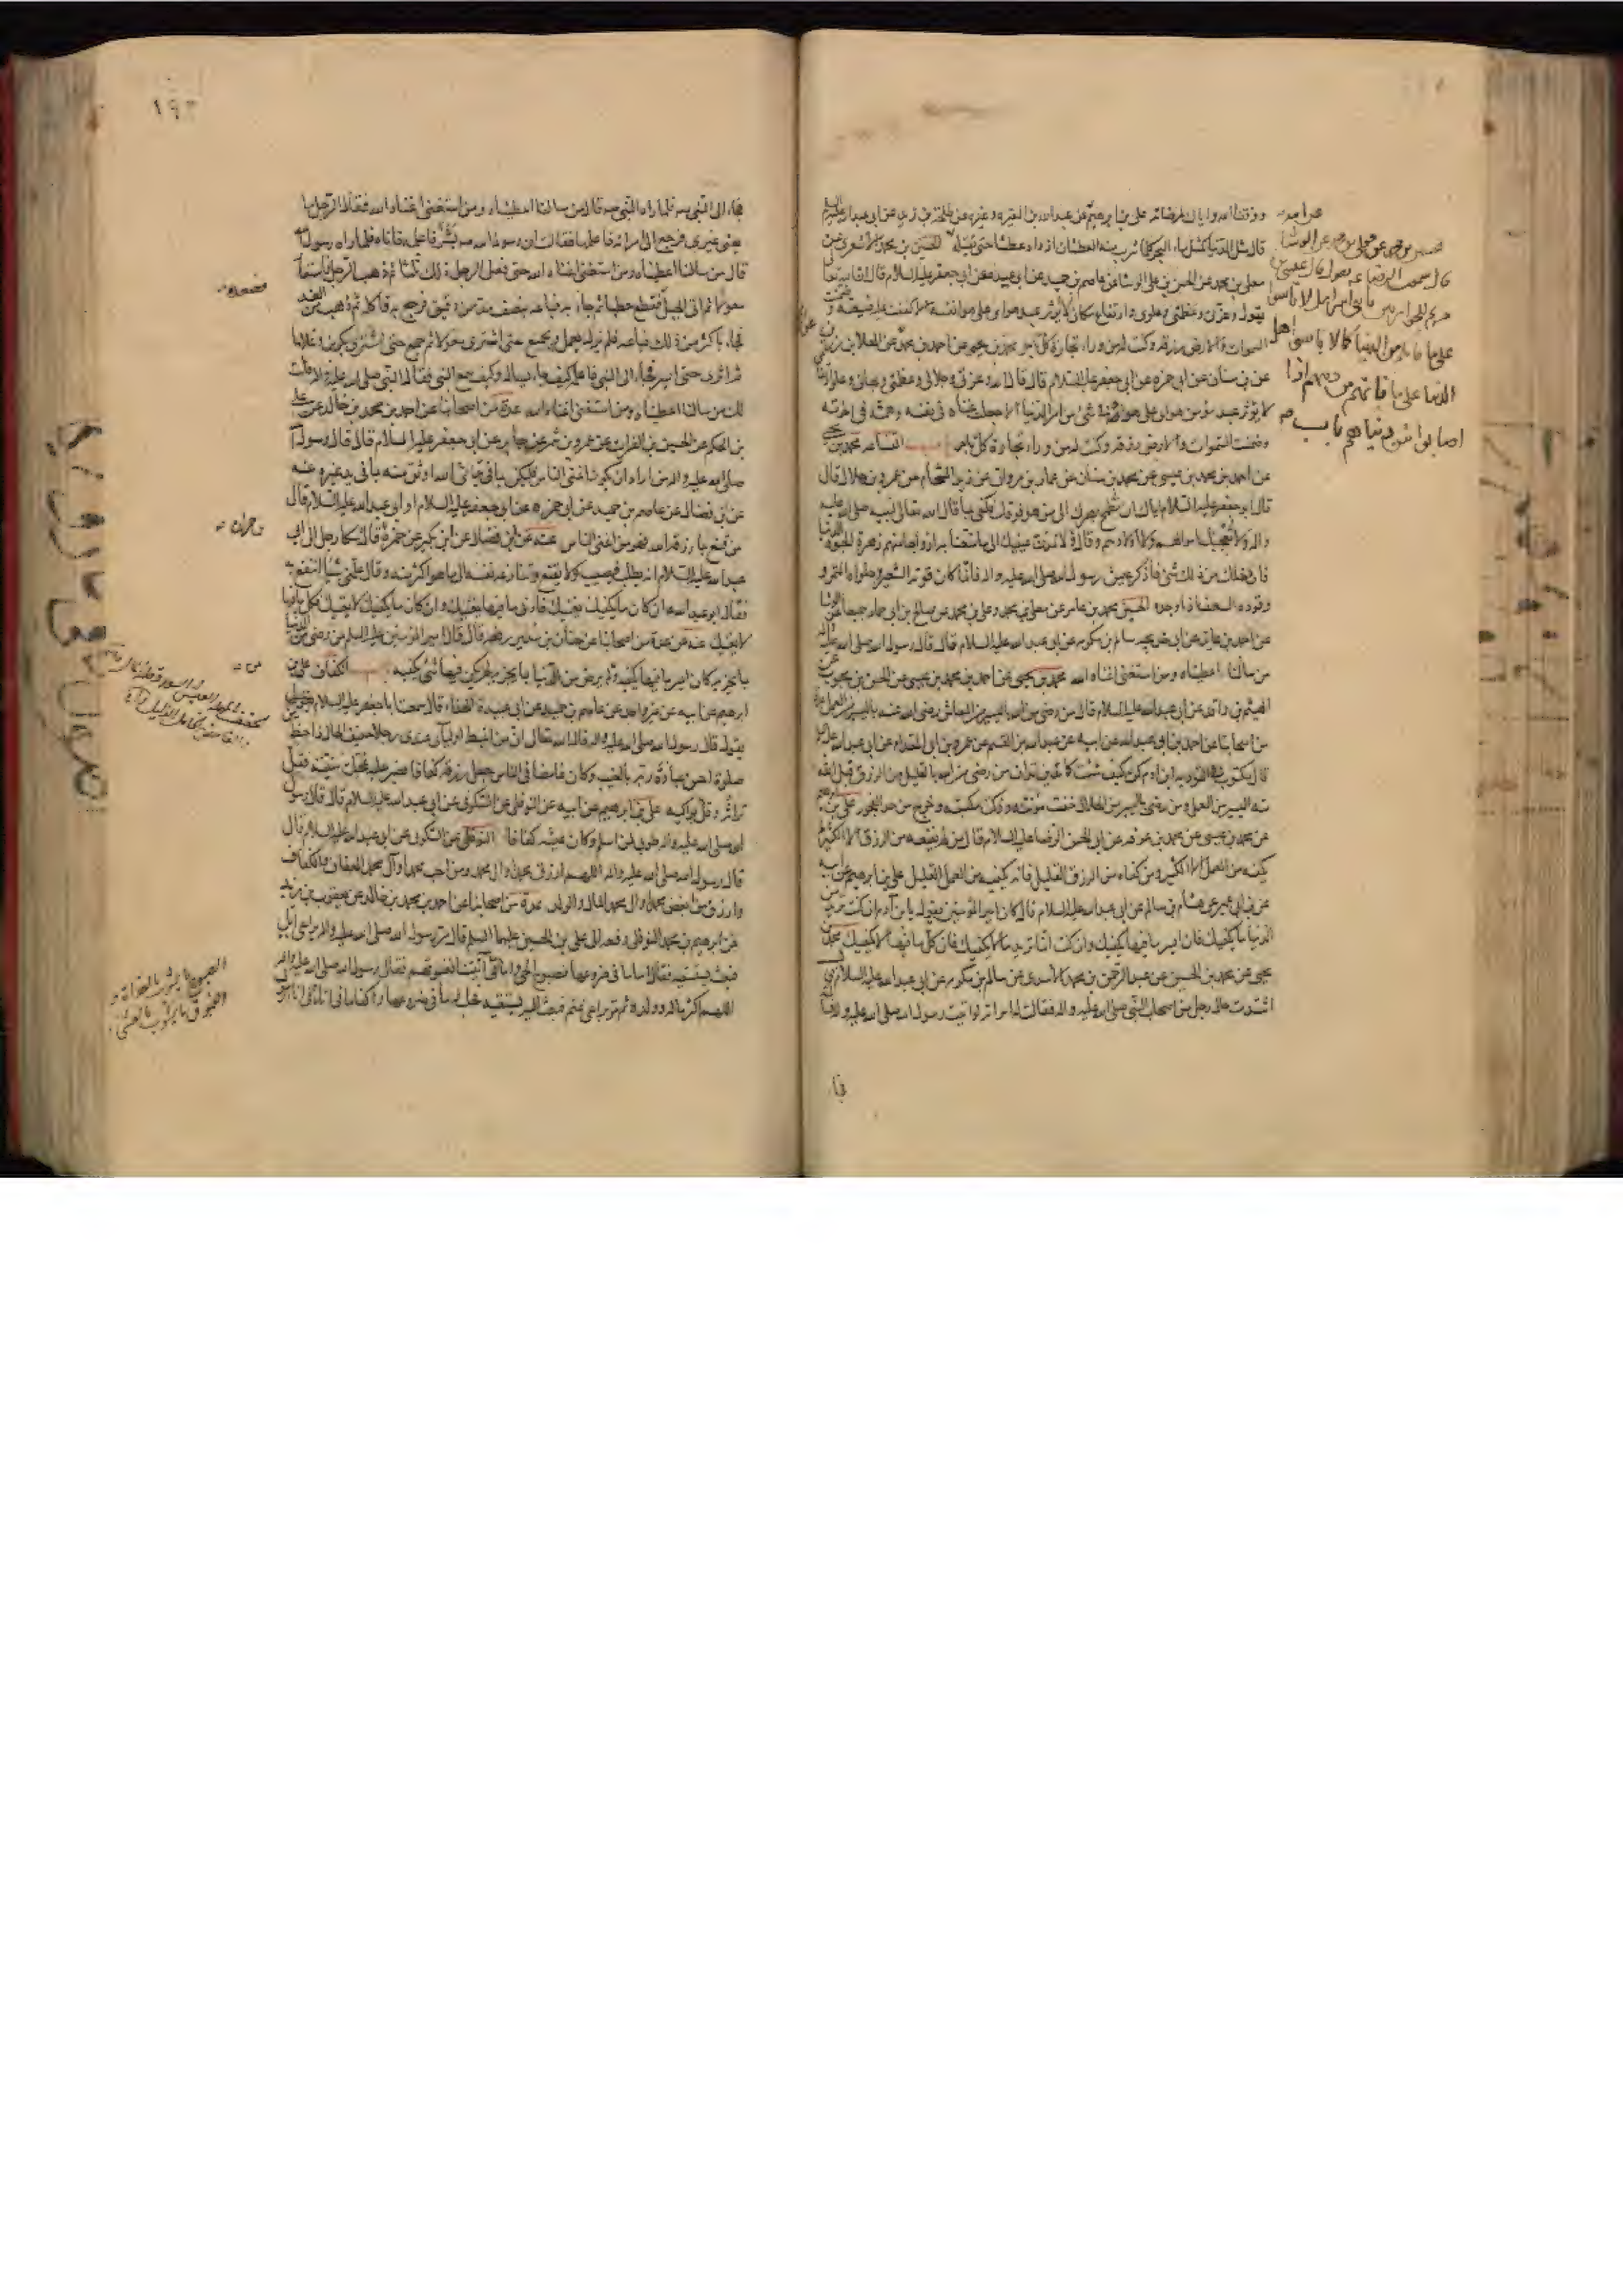 ووفقنا الله واياك لمرضاته علي بن ابرهيم عن عبدالله بن المغيرة وغيره عن طلحة بن زيد عن ابي عبدالله عليه السلم
قال مثل الدنيا كمثل ماء البحر كلما شرب منه العطشان ازداد عطشا حتى يقتله الحسين بن محمد الاشعري عن
معلى بن محمد عن الحسن بن علي الوشا عن عاصم بن حميد عن ابي عبيدة عن ابي جعفر عليه السلام قال ان الله تعالى
يقول وعزتي وعظمتي وعلوي وارتفاع مكاني لا يؤثر عبد هواي على هوا نفسه الا كففت عليه ضيعته وضمنت
السموات والارض رزقه وكنت له من وراء تجارة كل تاجر محمد بن يحيى عن احمد بن محمد عن العلاء بن رزين
عن ابن سنان عن ابي حمزه عن ابي جعفر عليه السلام قال قال الله وعزتي وجلالي وعظمتي وبهائي وعلو ارتفاعي
لا يؤثر عبد مؤمن هواي على هواه في شئ من امر الدنيا الا جعلت غناه في نفسه وهمته في اخرته
وضمنت السموات والارض رزقه وكنت له من وراء تجارة كل تاجر باب القناعه محمد بن يحيى
عن احمد بن محمد بن عيسى عن محمد بن سنان عن عمار بن مروان عن زيد الشحام عن عمرو بن هلال قال
قال ابو جعفر عليه السلام اياك ان تطمح بصرك الى من هو فوقك فكفى بما قال الله تعالى لنبيه صلى الله عليه
واله ولا تعجبك اموالهم ولا اولادهم وقال ولا تمدن عينيك الى ما متعنا به ازواجا منهم زهرة الحيوة الدنيا
فان دخلك من ذلك شئ فاذكر عيش رسول الله صلى الله عليه واله فانما كان قوته الشعير وحلواه التمر و
وقوده السعف اذا وجده الحسين بن محمد بن عامر عن معلى بن محمد وعلي بن محمد عن صالح بن ابي حماد جميعا عن الوشا
عن احمد بن عائذ عن ابي خديجه سالم بن مكرم عن ابي عبد الله عليه السلام قال قال رسول الله صلى الله عليه واله
من سألنا اعطيناه ومن استغنى اغناه الله محمد بن يحيى عن احمد بن محمد بن عيسى عن الحسن بن محبوب عن
الهيثم بن واقد عن ابي عبدالله عليه السلام قال من رضي من الله باليسير من المعاش رضي الله عنه باليسير من العمل عدة
من اصحابنا عن احمد بن ابي عبدالله عن ابيه عن عبدالله بن القسم عن عمرو بن ابي المقدام عن ابي عبدالله عليه السلم
قال مكتوب في التوريه ابن ادم كن كيف شئت كما تدين تدان من رضي من الله بالقليل من الرزق قبل الله
منه اليسير من العمل ومن رضي باليسير من الحلال خفت مؤنته وزكت مكسبته وخرج من حد الفجور علي بن ابرهيم
عن محمد بن عيسى عن محمد بن عرفه عن ابي الحسن الرضا عليه السلام قال من لم يقنعه من الرزق الا الكثير لم
يكفه من العمل الا الكثير ومن كفاه من الرزق القليل فانه يكفيه من العمل القليل علي بن ابرهيم عن ابيه
عن ابن ابي عمير عن هشام بن سالم عن ابي عبدالله عليه السلام قال كان امير المؤمنين يقول يا بن آدم ان كنت تريد من
الدنيا ما يكفيك فان ايسر ما فيها يكفيك وان كنت انما تريد ما لا يكفيك فان كل ما فيها لا يكفيك محمد بن
يحيى عن محمد بن الحسين عن عبد الرحمن بن محمد الاسدي عن سالم بن مكرم عن ابي عبدالله عليه السلام قال
اشتدت حال رجل من اصحاب النبي صلى الله عليه واله فقالت له امراته لو اتيت رسول الله صلى الله عليه واله فسألته
فجاء
عن الوشا
قال سمعت الرضا يقول قال عيسى بن
مريم للحواريين يا بني اسرائيل لا تاسوا
على ما فاتكم من الدنيا كما لا ياسى اهل
الدنيا على ما فاتهم من دينهم اذا
اصابوا دنياهم
١٩٣
فجاء الى النبي ص فلما راه النبي ص قال من سالنا اعطيناه ومن استغنى اغناه الله فقال الرجل ما
يعني غيري فرجع الى امراته فاعلمها فقالت ان رسول الله ص بشر فاعلمه فاتاه فلما راه رسول الله
قال من سالنا اعطيناه ومن استغنى اغناه الله حتى فعل الرجل ذلك ثلثا ثم ذهب الرجل فاستعار
معولا ثم اتى الجبل فقطع حطبا ثم جاء به فباعه بنصف مد من دقيق فرجع به فاكله ثم ذهب من الغد
فجاء باكثر من ذلك فباعه فلم يزل يعمل ويجمع حتى اشترى معولا ثم جمع حتى اشترى بكرين وغلاما
ثم اثرى حتى ايسر فجاء الى النبي فاعلمه كيف جاء يساله وكيف سمع النبي فقال النبي صلى الله عليه واله قلت
لك من سالنا اعطيناه ومن استغنى اغناه الله عدة من اصحابنا عن احمد بن محمد بن خالد عن علي
بن الحكم عن الحسين بن الفرات عن عمرو بن شمر عن جابر عن ابي جعفر عليه السلام قال قال رسول الله
صلى الله عليه واله من اراد ان يكون اغنى الناس فليكن بما في يد الله اوثق منه بما في يد غيره عنه
عن ابن فضال عن عاصم بن حميد عن ابي حمزه عن ابي جعفر عليه السلام او ابي عبدالله عليه السلام قال
من قنع بما رزقه الله فهو من اغنى الناس عنه عن ابن فضال عن ابن بكير عن حمزة قال شكا رجل الى ابي
عبدالله عليه السلام انه يطلب فيصيب ولا يقنع وتنازعه نفسه الى ما هو اكثر منه وقال علمني شيئا انتفع به
فقال ابو عبدالله ان كان ما يكفيك يغنيك فادنى ما فيها يغنيك وان كان ما يكفيك لا يغنيك فكل ما فيها
لا يغنيك عنه عن عدة من اصحابنا عن حنان بن سدير رفعه قال قال امير المؤمنين عليه السلم من رضي من الدنيا
بما يجزيه كان ايسر ما فيها يكفيه ومن لم يرض من الدنيا بما يجزيه لم يكن فيها شئ يكفيه باب الكفاف علي بن
ابرهيم عن ابيه عن غير واحد عن عاصم بن حميد عن ابي عبيدة الحذاء قال سمعت ابا جعفر عليه السلام
يقول قال رسول الله صلى الله عليه واله قال الله تعالى ان من اغبط اوليائي عندي رجلا خفيف الحال ذا حظ
صلوة احسن عبادة ربه بالغيب وكان غامضا في الناس جعل رزقه كفافا فصبر عليه عجلت منيته فقل
تراثه وقل بواكيه علي بن ابرهيم عن ابيه عن النوفلي عن السكوني عن ابي عبدالله عليه السلام قال قال رسول
الله صلى الله عليه واله طوبى لمن اسلم وكان عيشه كفافا النوفلي عن السكوني عن ابي عبدالله عليه السلام قال
قال رسول الله صلى الله عليه واله اللهم ارزق محمدا وال محمد ومن احب محمدا وآل محمد العفاف والكفاف
وارزق من ابغض محمدا وال محمد المال والولد عدة من اصحابنا عن احمد بن محمد بن خالد عن يعقوب بن يزيد
عن ابرهيم بن محمد النوفلي رفعه الى علي بن الحسين عليهما السلم قال مر رسول الله صلى الله عليه واله براعي ابل
فبعث يستسقيه فقال اما ما في ضروعها فصبوح الحي واما ما في آنيتنا فغبوقهم فقال رسول الله صلى الله عليه واله
اللهم اكثر ماله وولده ثم مر براعي غنم فبعث اليه يستسقيه فحلب له ما في ضروعها واكفا ما في انائه في اناء رسول
حمران
الصبوح ما يشرب بالغداة و
الغبوق ما يشرب بالعشي